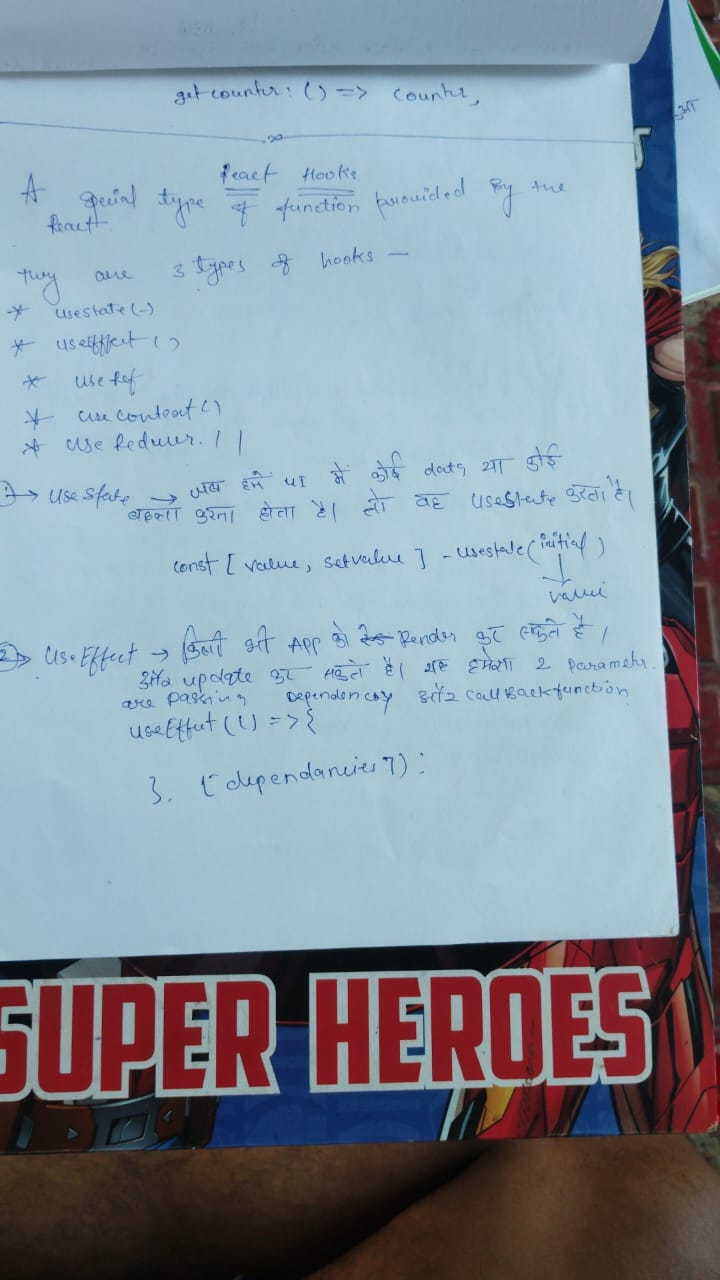 getcounter: () => counter,
React Hooks
A special type of function provided by the
React
They are 3 types of hooks —
* usestate(-)
* useeffect()
* useRef
* usecontext()
* useReducer. ||
1 → UseState → जब हमें UI में कोई data या कोई
बदलना करना होता है। तो वह UseState करता है।
const [value, setvalue] - usestate(initial)
value
2 → UseEffect → किसी भी App को Render कर सकते है।
और update कर सकते है। यह हमेशा 2 Parameter.
are passing Dependency और callBack function
useEffect(() => {
}, [dependancies]);
SUPER HEROES